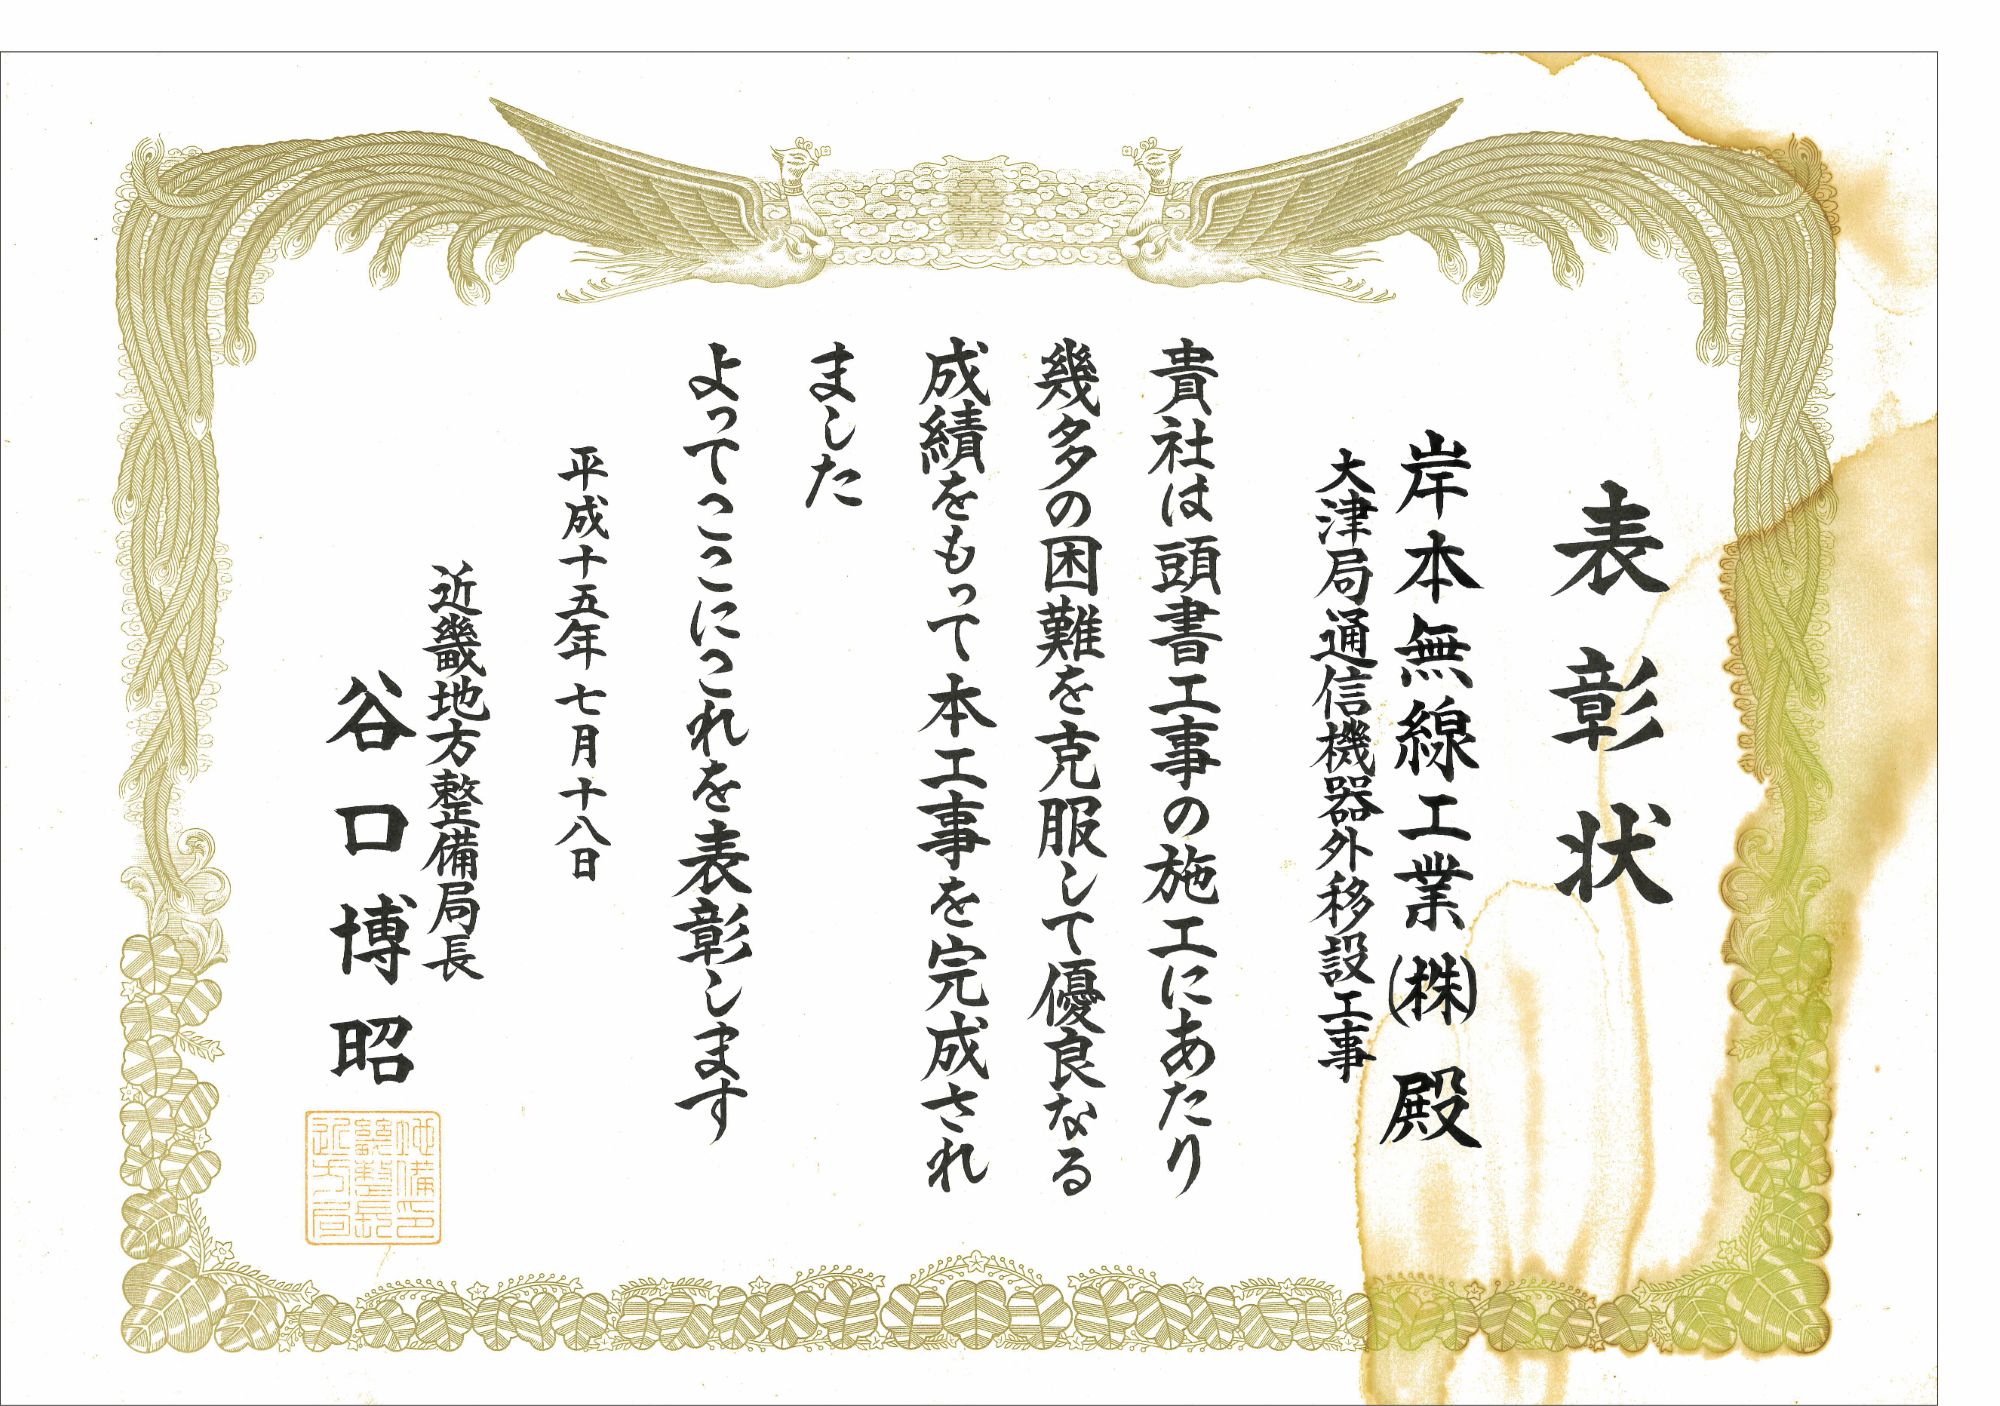 表彰状
岸本無線工業(株)殿
大津局通信機器外移設工事
貴社は頭書工事の施工にあたり
幾多の困難を克服して優良なる
成績をもって本工事を完成され
ました
よってここにこれを表彰します
平成十五年七月十八日
近畿地方整備局長
谷口博昭
近畿地方整備局長印